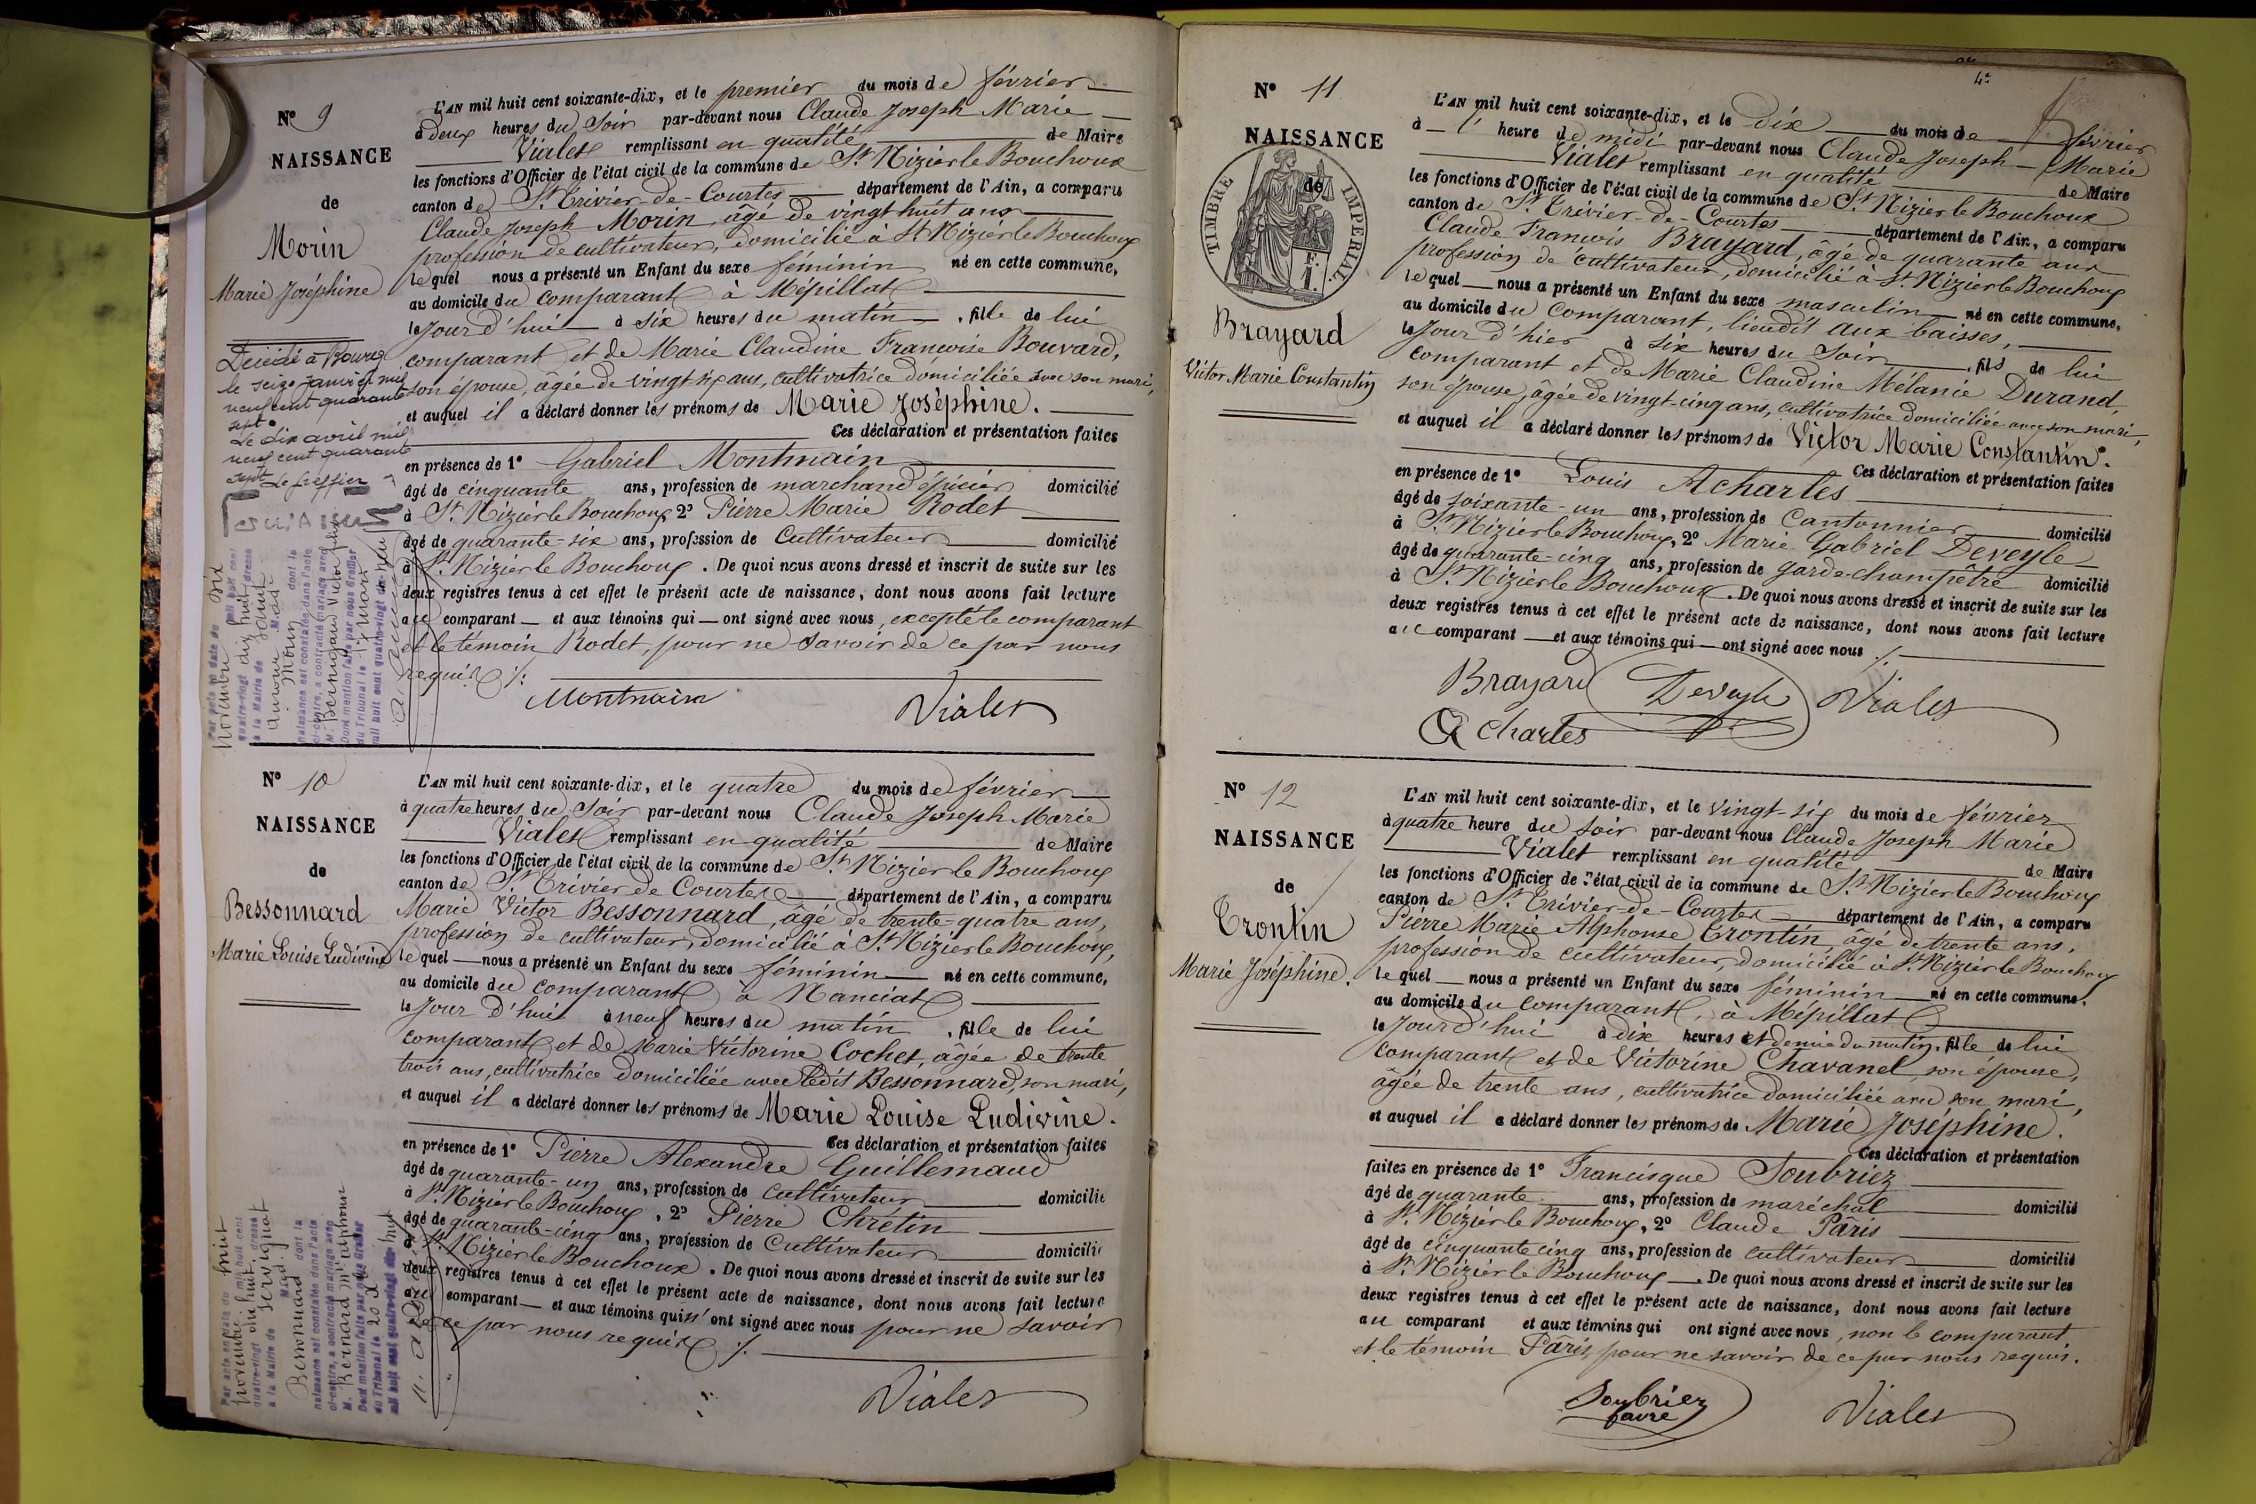 N° 9
NAISSANCE
de
Morin
Marie Joséphine
Décédé à Bourg
le seize janvier mil
neuf cent quarante
sept.
Le dix avril mil
neuf cent quarante
sept Le greffier
L'AN mil huit cent soixante-dix, et le premier du mois de février
à deux heures du soir par-devant nous Claude Joseph Marie
Vialet remplissant en qualité de Maire
les fonctions d'Officier de l'état civil de la commune de St Nizier le Bouchoux
canton de St Trivier-de-Courtes département de l'Ain, a comparu
Claude Joseph Morin, âgé de vingt huit ans
profession de cultivateur, domicilié à St Nizier le Bouchoux
lequel nous a présenté un Enfant du sexe féminin né en cette commune,
au domicile du comparant à Mépillat
le jour d'hui à six heures du matin, fille de lui
comparant et de Marie Claudine Françoise Bouvard,
son épouse, âgée de vingt six ans, cultivatrice domiciliée avec son mari,
et auquel il a déclaré donner les prénoms de Marie Joséphine.
Ces déclaration et présentation faites
en présence de 1° Gabriel Montmain
âgé de cinquante ans, profession de marchand épicier domicilié
à St Nizier le Bouchoux, 2° Pierre Marie Rodet
âgé de quarante-six ans, profession de cultivateur domicilié
à St Nizier le Bouchoux. De quoi nous avons dressé et inscrit de suite sur les
deux registres tenus à cet effet le présent acte de naissance, dont nous avons fait lecture
au comparant et aux témoins qui ont signé avec nous, excepté le comparant
et le témoin Rodet, pour ne savoir de ce par nous
requis ./.
Montmain Vialet
Par acte en date du dix
novembre mil huit cent
quatre-vingt dix huit dressé
à la Mairie de
Morin dont la
naissance est constatée dans l'acte
ci-contre, a contracté mariage avec
M.
Dont mention faite par nous Greffier
du Tribunal le
mil huit cent quatre-vingt dix
N° 10
NAISSANCE
de
Bessonnard
Marie Louise Ludivine
L'AN mil huit cent soixante-dix, et le quatre du mois de février
à quatre heures du soir par-devant nous Claude Joseph Marie
Vialet remplissant en qualité de Maire
les fonctions d'Officier de l'état civil de la commune de St Nizier le Bouchoux
canton de St Trivier de Courtes département de l'Ain, a comparu
Marie Victor Bessonnard, âgé de trente-quatre ans,
profession de cultivateur, domicilié à St Nizier le Bouchoux,
lequel nous a présenté un Enfant du sexe féminin né en cette commune,
au domicile du comparant à Nanciat
le jour d'hui à neuf heures du matin, fille de lui
comparant et de Marie Victorine Cochet, âgée de trente
trois ans, cultivatrice domiciliée avec ledit Bessonnard, son mari,
et auquel il a déclaré donner les prénoms de Marie Louise Ludivine.
Ces déclaration et présentation faites
en présence de 1° Pierre Alexandre Guillemaud
âgé de quarante-un ans, profession de cultivateur domicilié
à St Nizier le Bouchoux, 2° Pierre Chrétin
âgé de quarante-cinq ans, profession de cultivateur domicilié
à St Nizier le Bouchoux. De quoi nous avons dressé et inscrit de suite sur les
deux registres tenus à cet effet le présent acte de naissance, dont nous avons fait lecture
au comparant et aux témoins qui n'ont signé avec nous pour ne savoir
de ce par nous requis ./.
Vialet
Par acte en date du huit
novembre mil huit cent
quatre-vingt dix huit dressé
à la Mairie de Servignat
Bessonnard dont la
naissance est constatée dans l'acte
ci-contre, a contracté mariage avec
M. Bernard
Dont mention faite par nous Greffier
du Tribunal le 20
mil huit cent quatre-vingt dix huit
4e
N° 11
NAISSANCE
de
TIMBRE IMPERIAL
Brayard
Victor Marie Constantin
L'AN mil huit cent soixante-dix, et le dix du mois de février
à l' heure de midi par-devant nous Claude Joseph Marie
Vialet remplissant en qualité de Maire
les fonctions d'Officier de l'état civil de la commune de St Nizier le Bouchoux
canton de St Trivier-de-Courtes département de l'Ain, a comparu
Claude François Brayard, âgé de quarante ans
profession de cultivateur, domicilié à St Nizier le Bouchoux
lequel nous a présenté un Enfant du sexe masculin né en cette commune,
au domicile du comparant, lieudit aux baisses,
le jour d'hier à six heures du soir, fils de lui
comparant et de Marie Claudine Mélanie Durand,
son épouse, âgée de vingt-cinq ans, cultivatrice domiciliée avec son mari,
et auquel il a déclaré donner les prénoms de Victor Marie Constantin.
Ces déclaration et présentation faites
en présence de 1° Louis Acharles
âgé de soixante-un ans, profession de cantonnier domicilié
à St Nizier le Bouchoux, 2° Marie Gabriel Deveyle
âgé de quarante-cinq ans, profession de garde-champêtre domicilié
à St Nizier le Bouchoux. De quoi nous avons dressé et inscrit de suite sur les
deux registres tenus à cet effet le présent acte de naissance, dont nous avons fait lecture
au comparant et aux témoins qui ont signé avec nous ./.
Brayard Deveyle Vialet
A charles
N° 12
NAISSANCE
de
Trontin
Marie Joséphine.
L'AN mil huit cent soixante-dix, et le vingt-six du mois de février
à quatre heure du soir par-devant nous Claude Joseph Marie
Vialet remplissant en qualité de Maire
les fonctions d'Officier de l'état civil de la commune de St Nizier le Bouchoux
canton de St Trivier-de-Courtes département de l'Ain, a comparu
Pierre Marie Alphonse Trontin, âgé de trente ans,
profession de cultivateur, domicilié à St Nizier le Bouchoux
lequel nous a présenté un Enfant du sexe féminin né en cette commune,
au domicile du comparant, à Mépillat
le jour d'hui à dix heures et demie du matin, fille de lui
comparant et de Victorine Chavanel, son épouse,
âgée de trente ans, cultivatrice domiciliée avec son mari,
et auquel il a déclaré donner les prénoms de Marie Joséphine.
Ces déclaration et présentation
faites en présence de 1° Francisque Soubriez
âgé de quarante ans, profession de maréchal domicilié
à St Nizier le Bouchoux, 2° Claude Pâris
âgé de cinquante cinq ans, profession de cultivateur domicilié
à St Nizier le Bouchoux. De quoi nous avons dressé et inscrit de suite sur les
deux registres tenus à cet effet le présent acte de naissance, dont nous avons fait lecture
au comparant et aux témoins qui ont signé avec nous, non le comparant
et le témoin Pâris, pour ne savoir de ce par nous requis.
Soubriez Vialet
favre